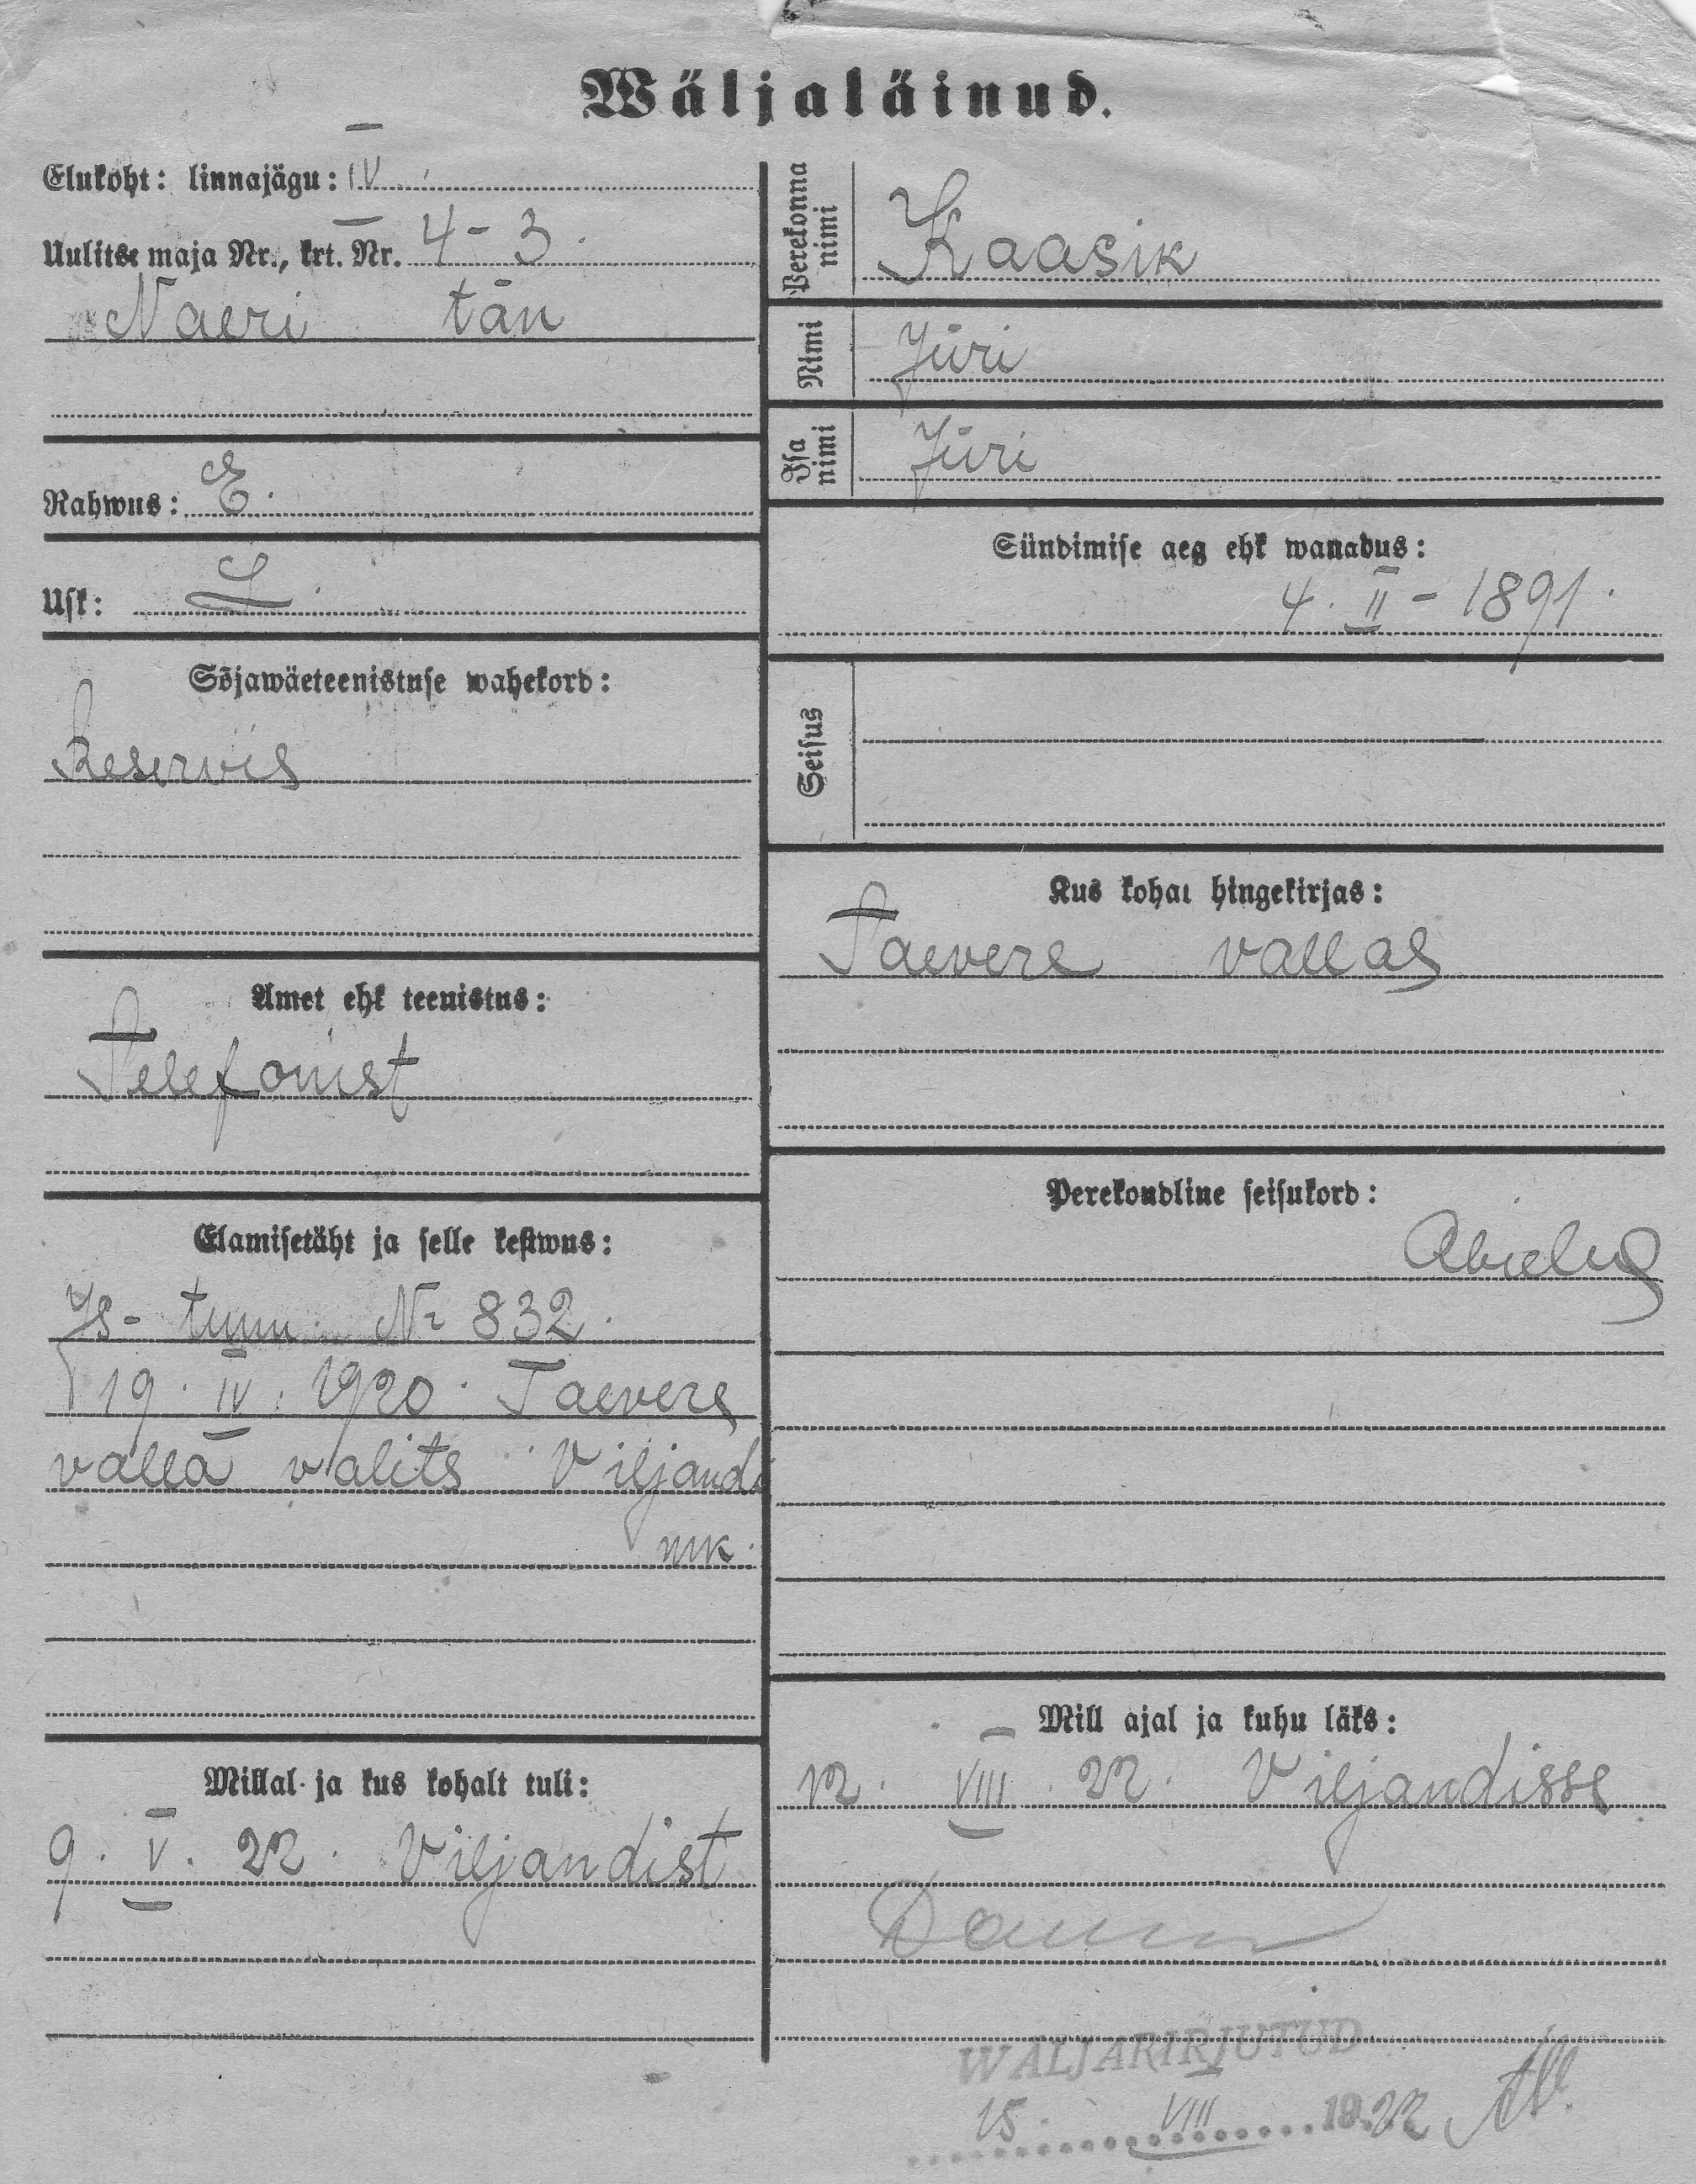 Wäljaläinud.
Elukoht: linnajägu: IV
Uulitse maja Nr., krt. Nr. 4-3.
Naeri tän
Rahwus: E.
Usk: L.
Sõjawäeteenistuse wahekord:
Reservis
Amet ehk teenistus:
Telefonist
Elamisetäht ja selle kestwus:
Is- tunn. № 832.
19. IV. 1920. Taevere
valla valits. Viljandi
mk.
Millal ja kus kohalt tuli:
9. V. 22. Viljandist
Perekonna nimi
Kaasik
Nimi
Jüri
Isa nimi
Jüri
Sündimise aeg ehk wanadus:
4. II - 1891.
Seisus
Kus kohal hingekirjas:
Taevere vallas
Perekondline seisukord:
Abielus
Mill ajal ja kuhu läks:
12. VIII. 22. Viljandisse
WÄLJAKIRJUTUD
15. VIII 1922